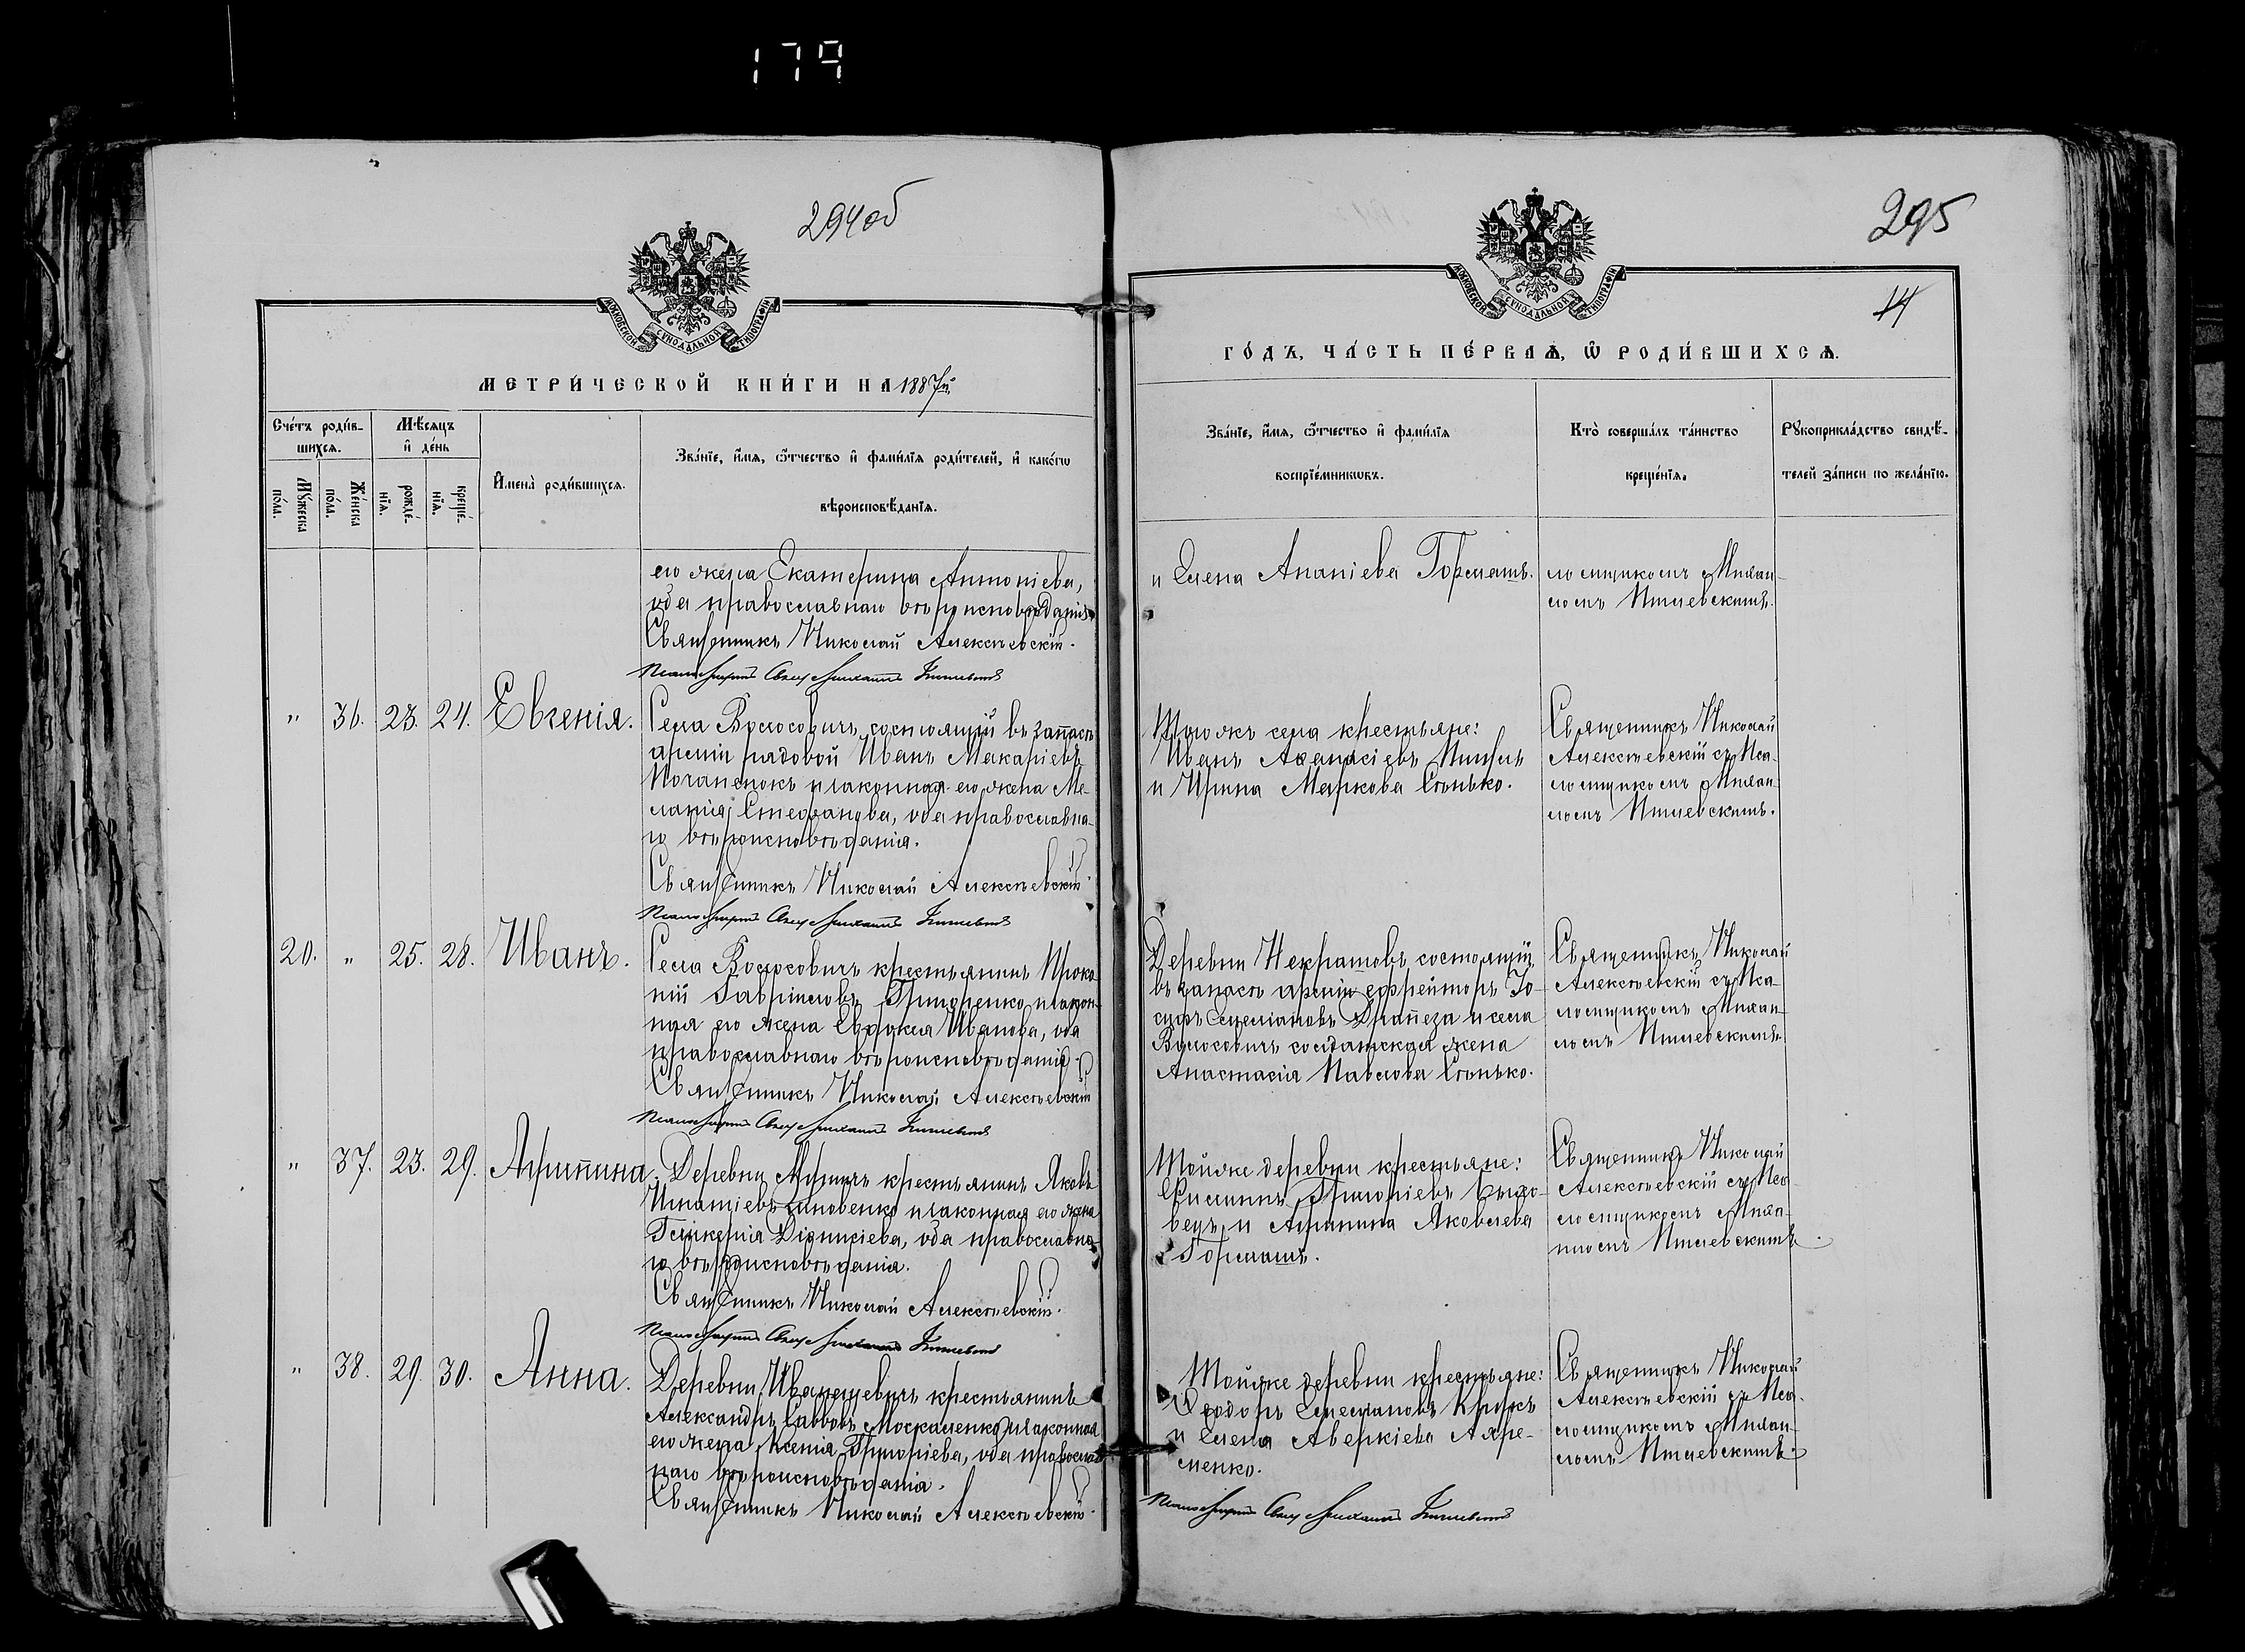 179
294об
МОСКОВСКОЙ СУНОДАЛЬНОЙ ТИПОГРАФІИ
МЕТРИ́ЧЕСКОЙ КНИ́ГИ НА 1887й
Счéтъ роди́в-
шихсѧ.
Мѣ́сѧцъ
и҆ де́нь
Мꙋ́жеска
по́ла.
Же́нска
по́ла.
рожде́-
нїѧ.
креще́-
нїѧ.
И҆мена̀ роди́вшихсѧ.
Зва́нїе, и҆́мѧ, ѻ҆́тчество и҆ фами́лїѧ роди́телей, и҆ како́гѡ
вѣроисповѣ́данїѧ.
его жена Екатерина Антоніева,
оба православнаго вѣроисповѣданія
Священникъ Николай Алексѣевскій.
" 36. 23. 24. Евгенія.
Села Волосовичъ состоящій въ запасѣ
арміи рядовой Иванъ Макаріевъ
и законная его жена Ме-
ланія Стефанова, оба православна-
го вѣроисповѣданія.
Священникъ Николай Алексѣевскій
20. " 25. 28. Иванъ.
Села Волосовичъ крестьянинъ Проко-
пій Гавріиловъ Григоренко и закон-
ная его жена Евдокія Иванова, оба
православнаго вѣроисповѣданія
Священникъ Николай Алексѣевскій
" 37. 23. 29. Агрипина.
Деревни крестьянинъ Яковъ
Игнатіевъ и законная его жена
Гликерія Діонисіева, оба православна-
го вѣроисповѣданія.
Священникъ Николай Алексѣевскій.
" 38. 29. 30. Анна.
Деревни крестьянинъ
Александръ Саввовъ Москаленко и законная
его жена Ксенія Григоріева, оба православ-
наго вѣроисповѣданія.
Священникъ Николай Алексѣевскій.
295
14
МОСКОВСКОЙ СУНОДАЛЬНОЙ ТИПОГРАФІИ
ГО́ДЪ, ЧА́СТЬ ПЕ́РВАѦ, Ѽ РОДИ́ВШИХСѦ.
Зва́нїе, и҆́мѧ, ѻ҆́тчество и҆ фами́лїѧ
воспрїе́мникѡвъ.
Кто̀ соверша́лъ та́инство
креще́нїѧ.
Рꙋкоприкла́дство свидѣ́-
телей за́писи по жела́нїю.
и Елена Ананіева Гормашъ.
ломщикомъ Михаи-
ломъ
Того-жъ села крестьяне:
Иванъ Аѳанасіевъ
и Ирина Маркова Сонько.
Священникъ Николай
Алексѣевскій съ Пса-
ломщикомъ Михаи-
ломъ
Деревни состоящій
въ запасѣ арміи ефрейторъ Іо-
сифъ Емеліановъ и села
Волосовичъ солдатская жена
Анастасія Павлова Сонько.
Священникъ Николай
Алексѣевскій съ Пса-
ломщикомъ Михаи-
ломъ
Тойже деревни крестьяне:
Филиппъ Григоріевъ
и Агрипина Яковлева
Гормашъ.
Священникъ Николай
Алексѣевскій съ Пса-
ломщикомъ Михаи-
ломъ
Тойже деревни крестьяне:
Ѳеодоръ Емеліановъ
и Елена Аверкіева Ахре-
менко.
Священникъ Николай
Алексѣевскій съ Пса-
ломщикомъ Михаи-
ломъ